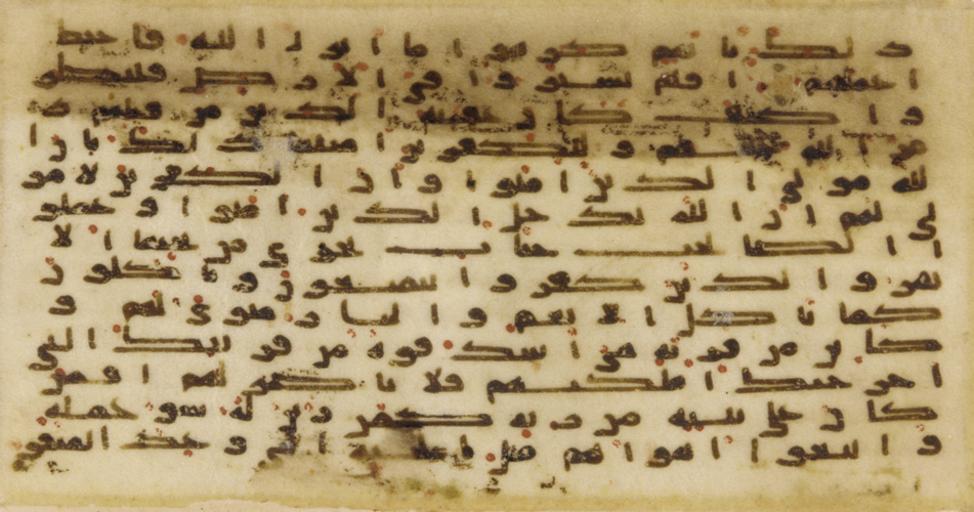 ذلك بانهم كرهوا ما انزل الله فاحبط
اعملهم افلم يسيروا في الارض فينظرو
ا كيف كان عقبه الذين من قبلهم د
مر الله عليهم وللكفرين امثلها ذلك بان ا
لله مولى الذين امنوا وان الكفرين لا مو
لى لهم ان الله يدخل الذين امنوا وعملو
ا الصلحت جنت تجري من تحتها الا
نهر والذين كفروا يتمتعون وياكلون
كما تاكل الانعم والنار مثوى لهم و
كاين من قريه هي اشد قوه من قريتك التي
اخرجتك اهلكنهم فلا ناصر لهم افمن
كان على بينه من ربه كمن زين له سو عمله
واتبعوا اهواهم مثل الجنه التي وعد المتقو